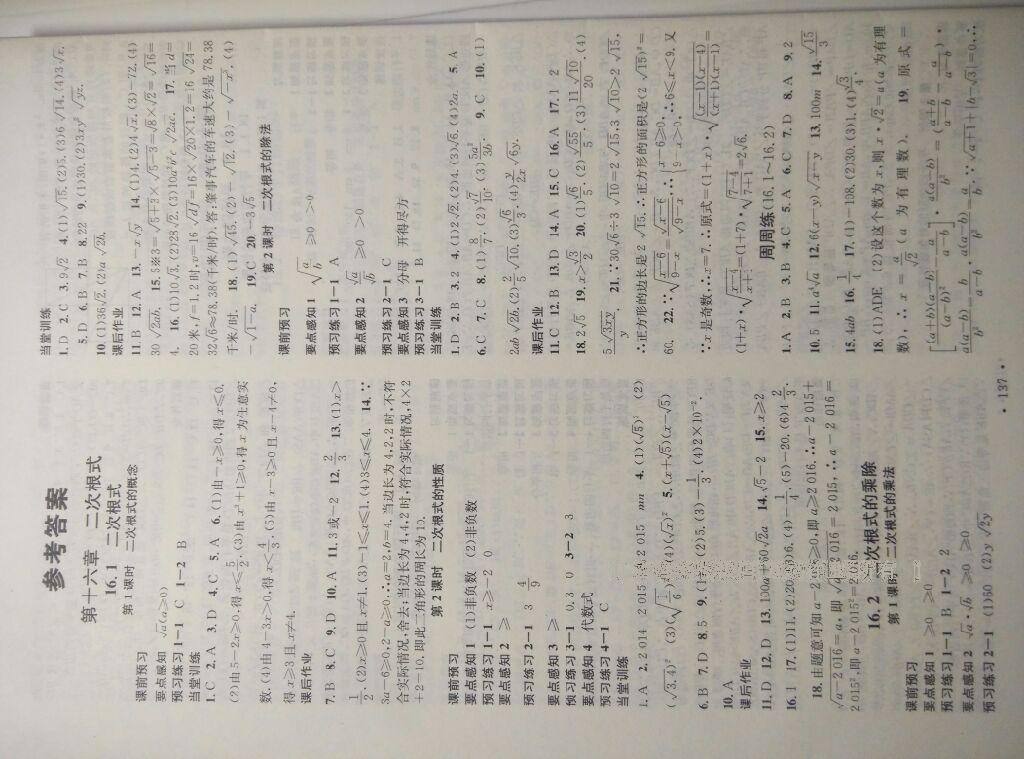 参考答案
第十六章 二次根式
16.1 二次根式
第1课时 二次根式的概念
课前预习
要点感知 √a(a≥0)
预习练习1-1 C 1-2 B
当堂训练
1. C 2. A 3. D 4. C 5. A 6. (1)由-x≥0,得x≤0.
(2)由5-2x≥0,得x≤5/2. (3)由x²+1≥0,得x为任意实
数. (4)由4-3x>0,得x<4/3. (5)由x-3≥0且x-4≠0,
得x≥3且x≠4.
课后作业
7. B 8. C 9. D 10. A 11. 3或-2 12. 2/3 13. (1)x>
1/2. (2)x≥0且x≠1. (3)-1≤x≤1. (4)3≤x≤4. 14. ∵
3a-6≥0,2-a≥0,∴a=2,b=4. 当边长为4,2,2时,不符
合实际情况,舍去;当边长为4,4,2时,符合实际情况,4×2
+2=10. 即此三角形的周长为10.
第2课时 二次根式的性质
课前预习
要点感知1 (1)非负数 (2)非负数
预习练习1-1 x≥-2 0
要点感知2 ≥
预习练习2-1 3 4/9
要点感知3 ≥
预习练习3-1 0.3 0 3-2 3
要点感知4 代数式
预习练习4-1 C
当堂训练
1. A 2. 2 014 2 015 3. 2 015 mn 4. (1)(√5)² (2)
(√3.4)² (3)(√1/6)² (4)(√x)² 5. (x+√5)(x-√5)
6. B 7. D 8. 5 9. (1)7. (2)5. (3)-1/3. (4)2×10⁻².
10. A
课后作业
11. D 12. D 13. 1 100a+60√2a 14. √5-2 15. x≥2
16. 1 17. (1)11. (2)20. (3)6. (4)-1/4. (5)-20. (6)4 2/3.
18. 由题意可知a-2 016≥0,即a≥2 016. ∴a-2 015+
√a-2 016=a,即√a-2 016=2 015,∴a-2 016=
2 015²,即a-2 015²=2 016.
16.2 二次根式的乘除
第1课时 二次根式的乘法
课前预习
要点感知1 ≥0 ≥0
预习练习1-1 B 1-2 2
要点感知2 √a·√b ≥0 ≥0
预习练习2-1 (1)60 (2)y√2y
当堂训练
1. D 2. C 3. 9√2 4. (1)√15. (2)5. (3)6√14. (4)3√x.
5. D 6. B 7. B 8. 22 9. (1)30. (2)3xy²√yz.
10. (1)36√2. (2)a√2b.
课后作业
11. B 12. A 13. -x√y 14. (1)4. (2)4√x. (3)-72. (4)
30√2ab. 15. 5※3=√5+3×√5-3=√8×√2=√16=
4. 16. (1)10√3. (2)23√2. 17. 当d=
20米,f=1.2时,v=16√df=16×√20×1.2=16√24=
32√6≈78.38(千米/时). 答:肇事汽车的车速大约是78.38
千米/时. 18. (1)√15. (2)-√12. (3)-√-x³. (4)
-√1-a. 19. C 20. -3√5
第2课时 二次根式的除法
课前预习
要点感知1 √a/b ≥0 >0
预习练习1-1 A
要点感知2 √a/√b ≥0 >0
预习练习2-1 C
要点感知3 分母 开得尽方
预习练习3-1 B
当堂训练
1. D 2. B 3. 2 4. (1)2√2. (2)4. (3)√6. (4)2a. 5. A
6. C 7. C 8. (1)8/7. (2)√7/10. 9. C 10. (1)
2ab√2b. (2)2/5√10. (3)√6/3. (4)y/2x√6y.
课后作业
11. C 12. B 13. D 14. A 15. C 16. A 17. 1 2
18. 2√5 19. x>√3/2 20. (1)√6/5. (2)-√55/5. (3)11√10/20. (4)
5√3xy/y. 21. ∵30√6÷3√10=2√15,3√10>2√15,
∴正方形的边长是2√15. ∴正方形的面积是(2√15)²=
60. 22. ∵√x-6/9-x=√x-6/√9-x,∴{x-6≥0, 9-x>0, ∴6≤x<9. 又
∵x是奇数,∴x=7. ∴原式=(1+x)·√(x-1)(x-4)/(x-1)(x+1)=
(1+x)·√x-4/x+1=(1+7)·√7-4/7+1=2√6.
周周练(16.1~16.2)
1. A 2. B 3. B 4. C 5. A 6. C 7. D 8. A 9. 2
10. 5 11. a⁴√a 12. 6(x-y)√x-y 13. 100m 14. √15/3
15. 4ab 16. 1/4 17. (1)-108. (2)30. (3)1. (4)√3/4.
18. (1)ADE (2)设这个数为x,则x·√2=a(a为有理
数),∴x=a/√2(a为有理数). 19. 原式=
[(a+b)(a-b)/(a-b)²-a/a-b]·a(a-b)/b²=(a+b/a-b-a/a-b)·
a(a-b)/b²=b/a-b·a(a-b)/b²=a/b. ∵√a+1+|b-√3|=0,∴
· 137 ·